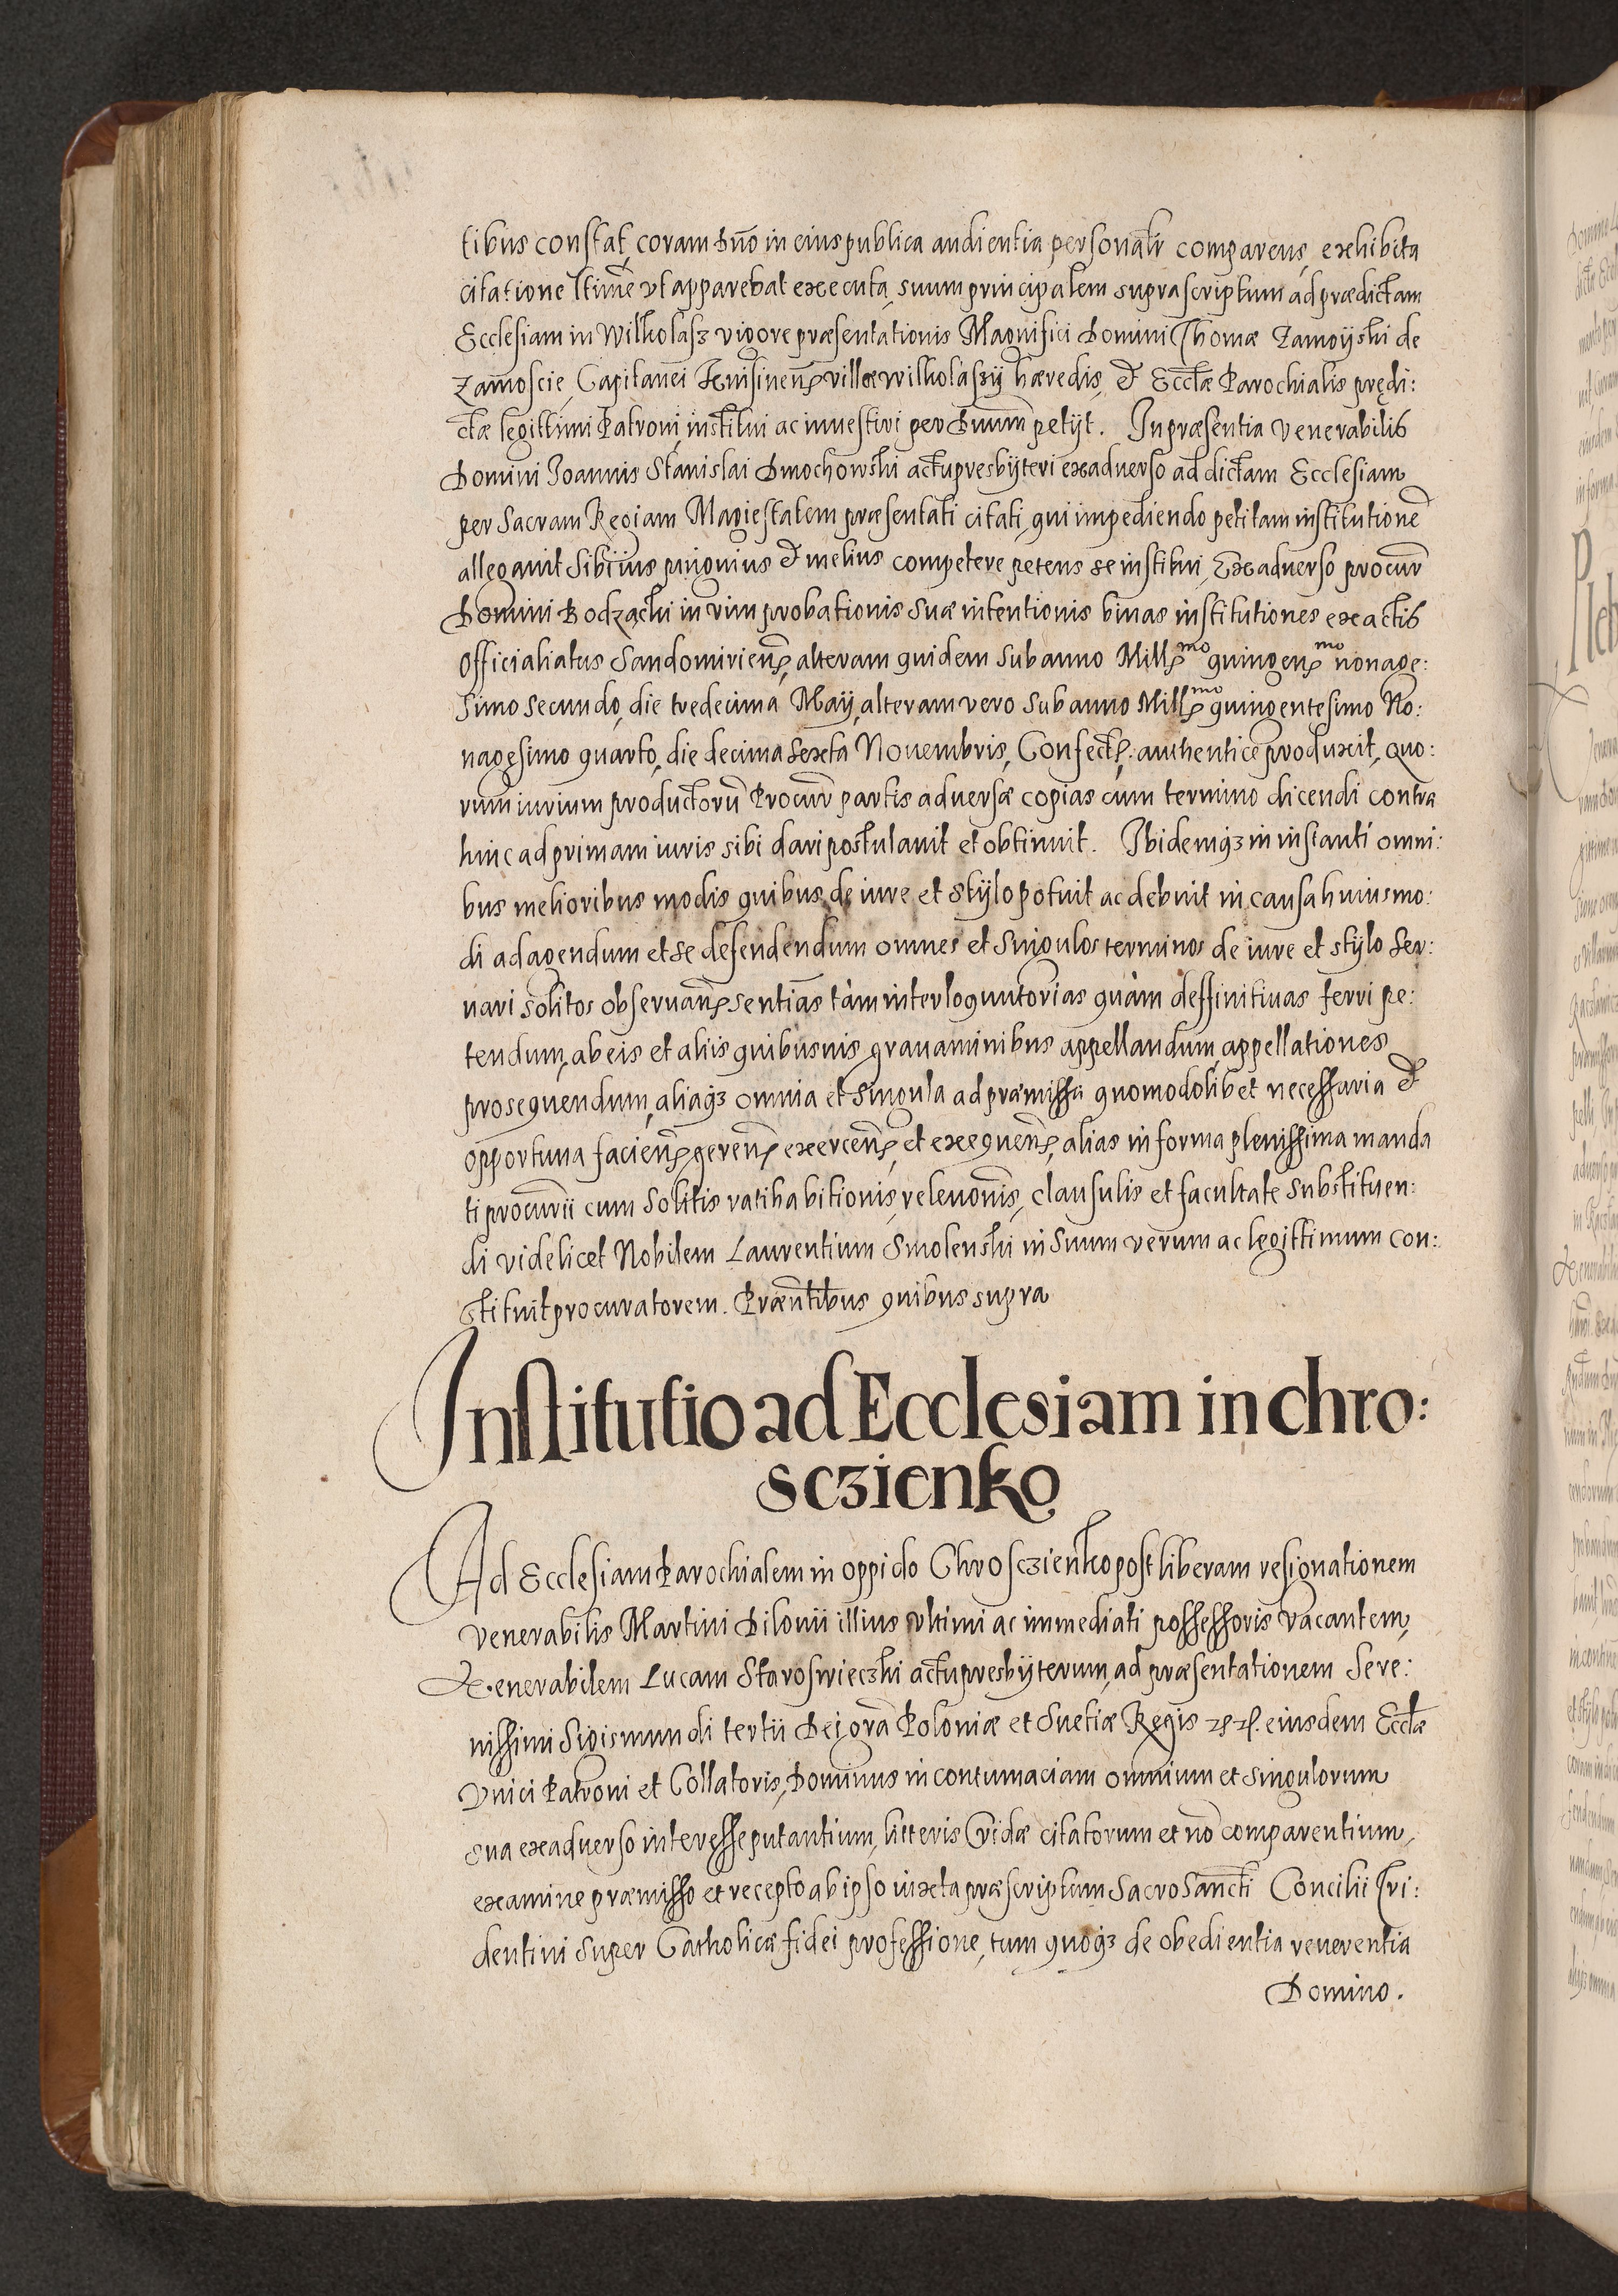 tibus constat, coram Dno in eius publica audientia personalr comparens, exhibita
citatione ltime vt apparebat executa, suum principalem suprascriptum ad prædictam
Ecclesiam in Wilkolasz vigore præsentationis Magnifici Domini Thomæ Zamoyski de
Zamoscie, Capitanei villæ wilkolaszy hæredis, & Ecclæ Parochialis prędi:
ctæ legittimi Patroni, institui ac inuestiri per Dnum petijt. In præsentia Venerabilis
Domini Joannis Stanislai Dmochowski actu presbyteri ex aduerso ad dictam Ecclesiam
per Sacram Regiam Magiestatem præsentati citati, qui impediendo petitam institutione
allegauit sibi ius pinguius & melius competere petens se institui, Ex aduerso procur
Domini Bodzącki in vim probationis suæ intentionis binas institutiones ex actis
officialiatus Sandomirien, alteram quidem sub anno Mill^mo quingen^mo nonage:
simo secundo, die tredecima Maÿ, alteram vero sub anno Mill^mo quingentesimo No:
nagesimo quarto, die decima sexta Nouembris, Confect, authentice produxit, quo:
rum iurium productoru Procur partis aduersæ copias cum termino dicendi contra
hinc ad primam iuris sibi dari postulauit et obtinuit. Ibidemqз in instanti omni:
bus melioribus modis quibus de iure et stylo potuit ac debuit in causa huiusmo:
di ad agendum et se defendendum omnes et singulos terminos de iure et stylo ser:
uari solitos obseruan sentias tàm interloquutorias quàm deffinitiuas ferri pe:
tendum, ab eis et aliis quibusuis grauaminibus appellandum, appellationes
prosequendum, aliaqз omnia et singula ad præmissa quomodolibet necessaria &
opportuna facien geren exercen, et exequen, alias in forma plenissima manda
ti procurii cum solitis ratihabitionis, releuonis, clausulis et facultate substituen:
di videlicet Nobilem Laurentium Smolenski in suum verum ac legittimum con:
stituit procuratorem. Præntibus quibus supra
Institutio ad Ecclesiam in chro:
sczienko
Ad Ecclesiam Parochialem in oppido Chrosczienko post liberam resignationem
venerabilis Martini Dilonii illius vltimi ac immediati possessoris vacantem,
Venerabilem Lucam Staroswieczki actu presbyterum, ad præsentationem Sere:
nissimi Sigismundi tertii Dei gra Poloniæ et Suetiæ Regis eiusdem Ecclæ
Vnici Patroni et Collatoris, Dominus in contumaciam omnium et singulorum
sua ex aduerso interesse putantium, litteris Cridæ citatorum et no comparentium,
examine præmisso et recepto ab ipso iuxta præscriptum Sacro Sancti Concilii Tri:
dentini super Catholicæ fidei professione, tum quoqз de obedientia reuerentia
Domino.